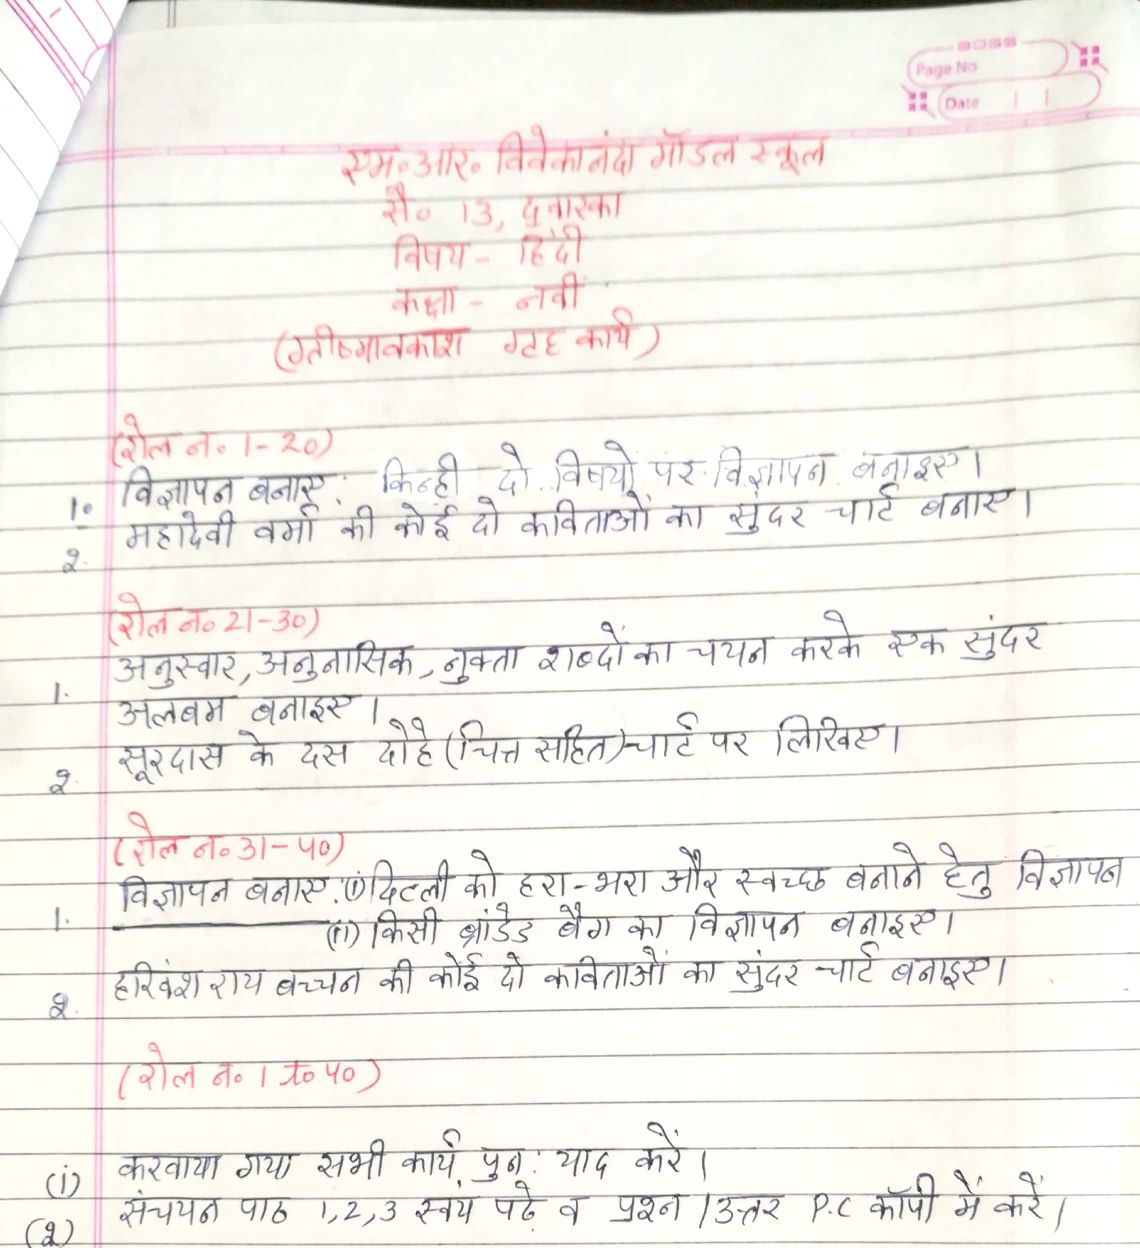 BOSS
Page No
Date
एम॰ आर॰ विवेकानंदा मॉडल स्कूल
सै॰ 13, द्वारका
विषय - हिंदी
कक्षा - नवीं
(ग्रीष्मावकाश गृह कार्य)
(रोल न॰ 1-20)
1. विज्ञापन बनाए: किन्ही दो विषयों पर विज्ञापन बनाइए।
2. महादेवी वर्मा की कोई दो कविताओं का सुंदर चार्ट बनाए।
(रोल न॰ 21-30)
1. अनुस्वार, अनुनासिक, नुक्ता शब्दों का चयन करके एक सुंदर
अलबम बनाइए।
2. सूरदास के दस दोहे (चित्त सहित) चार्ट पर लिखिए।
(रोल न॰ 31-40)
1. विज्ञापन बनाए: (i) दिल्ली को हरा-भरा और स्वच्छ बनाने हेतु विज्ञापन
(ii) किसी ब्रांडेड बैग का विज्ञापन बनाइए।
2. हरिवंश राय बच्चन की कोई दो कविताओं का सुंदर चार्ट बनाइए।
(रोल न॰ 1 to 40)
(i) करवाया गया सभी कार्य पुन: याद करें।
(2) संचयन पाठ 1,2,3 स्वयं पढ़े व प्रश्न/उत्तर P.C कॉपी में करें।